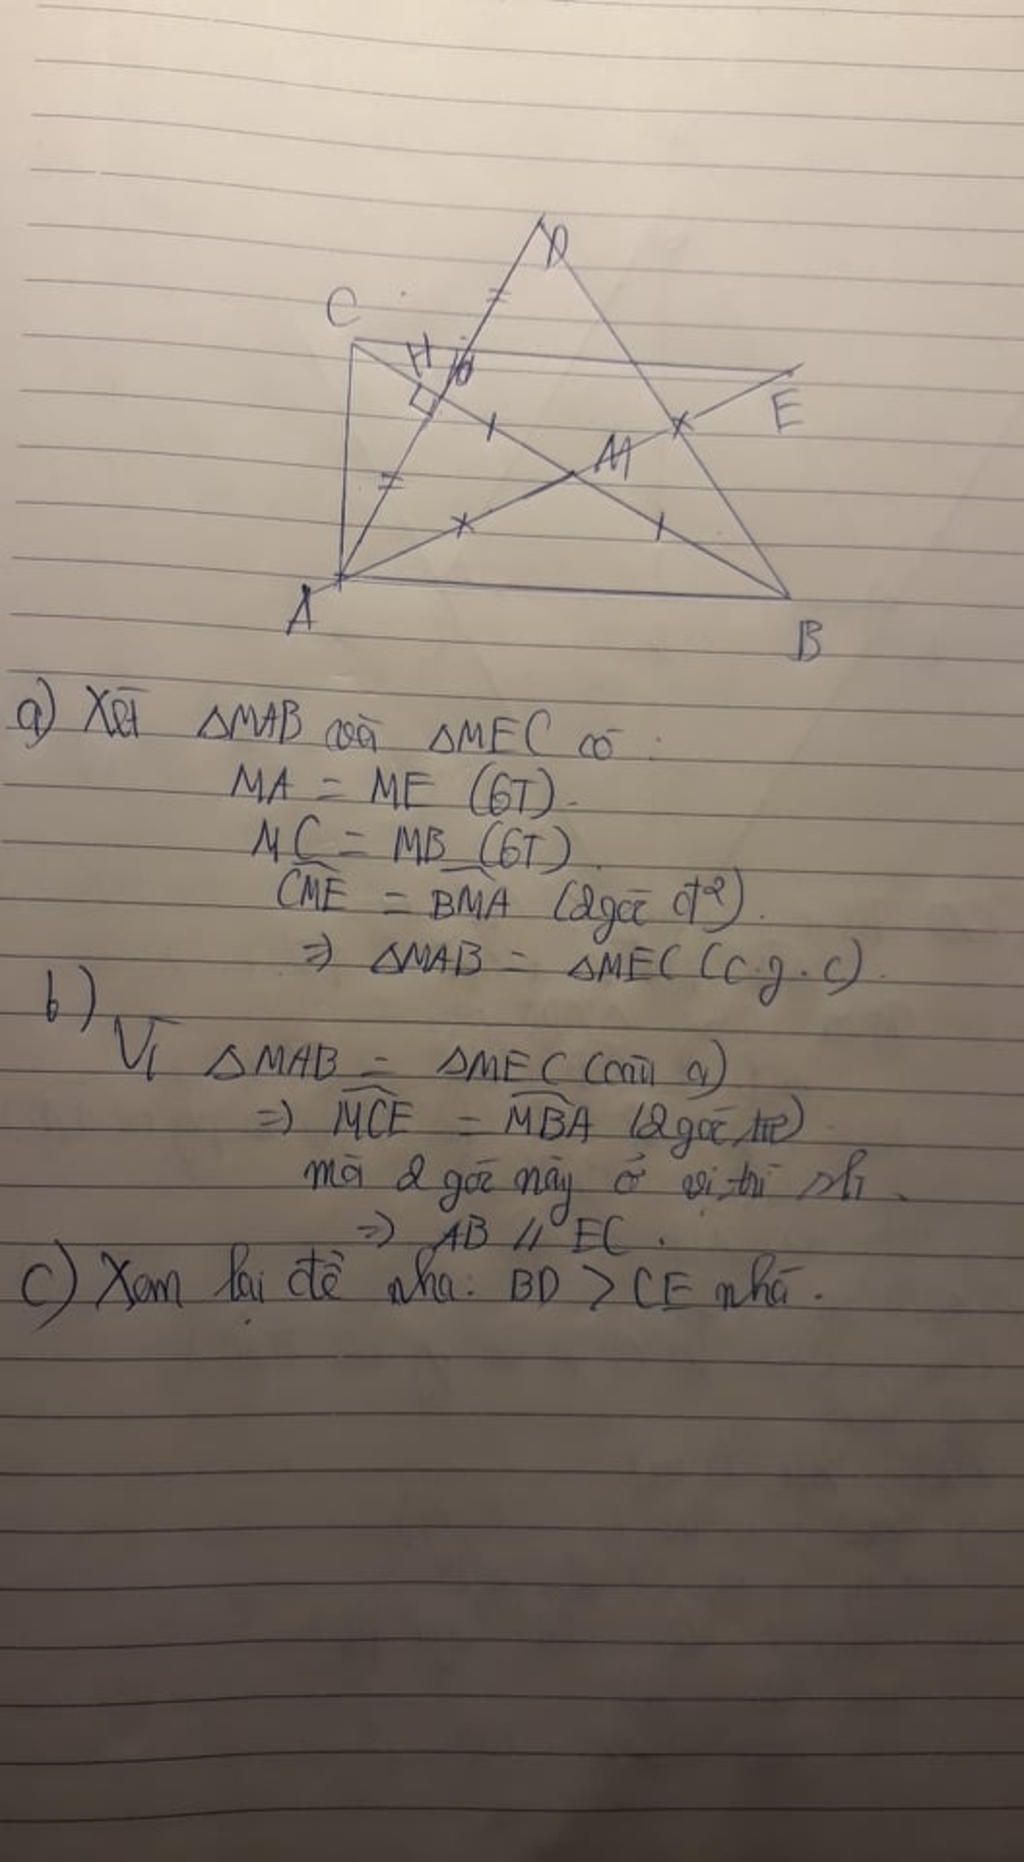 D
C
H
E
M
A
B
a) Xét ΔMAB và ΔMEC có :
MA = ME (GT).
MC = MB (GT).
\widehat{CME} = \widehat{BMA} (2 góc đ²).
⇒ ΔMAB = ΔMEC (c.g.c).
b)
Vì ΔMAB = ΔMEC (câu a)
⇒ \widehat{MCE} = \widehat{MBA} (2 góc tứ)
mà 2 góc này ở vị trí slt.
⇒ AB // EC.
c) Xem lại đề nha: BD > CE nhá.